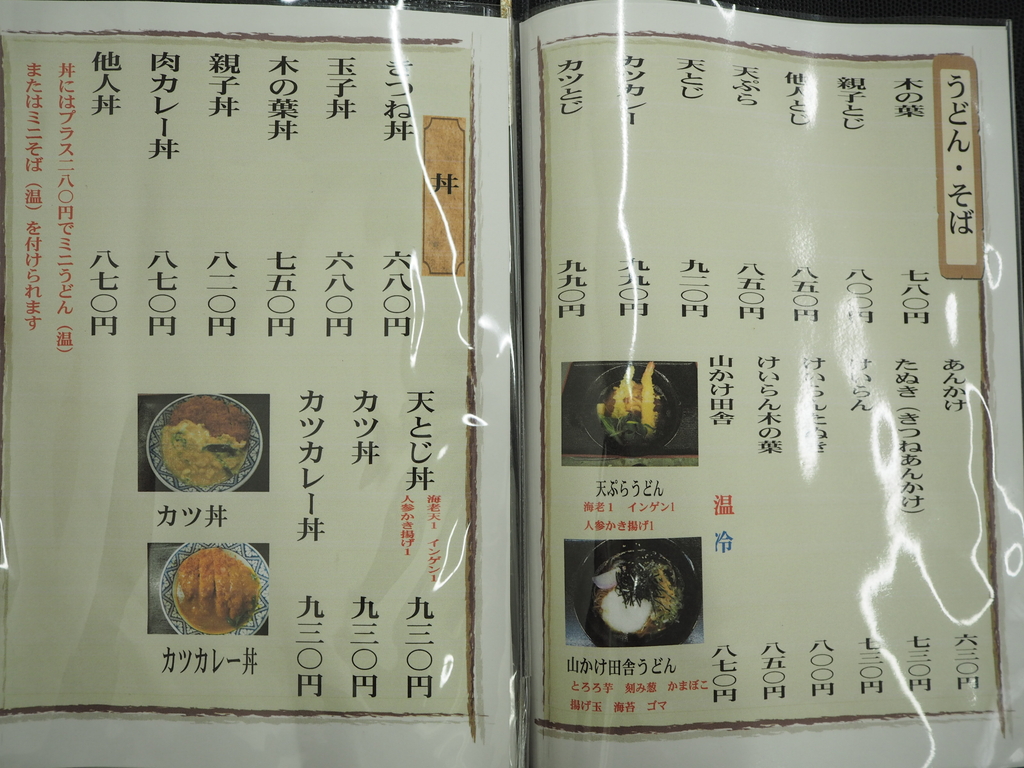 うどん・そば
木の葉 七八〇円
親子とじ 八〇〇円
他人とじ 八五〇円
天ぷら 八五〇円
天とじ 九一〇円
カツカレー 九九〇円
カツとじ 九九〇円
あんかけ 六三〇円
たぬき（きつねあんかけ） 七三〇円
けいらん
けいらんたぬき 八〇〇円
けいらん木の葉 八五〇円
山かけ田舎 温 冷 八七〇円
天ぷらうどん
海老1 インゲン1
人参かき揚げ1
山かけ田舎うどん
とろろ芋 刻み葱 かまぼこ
揚げ玉 海苔 ゴマ
丼
きつね丼 六八〇円
玉子丼 六八〇円
木の葉丼 七五〇円
親子丼 八二〇円
肉カレー丼 八七〇円
他人丼 八七〇円
丼にはプラス二八〇円でミニうどん（温）
またはミニそば（温）を付けられます
天とじ丼 九三〇円
海老天1 インゲン1
人参かき揚げ1
カツ丼 九三〇円
カツカレー丼 九三〇円
カツ丼
カツカレー丼